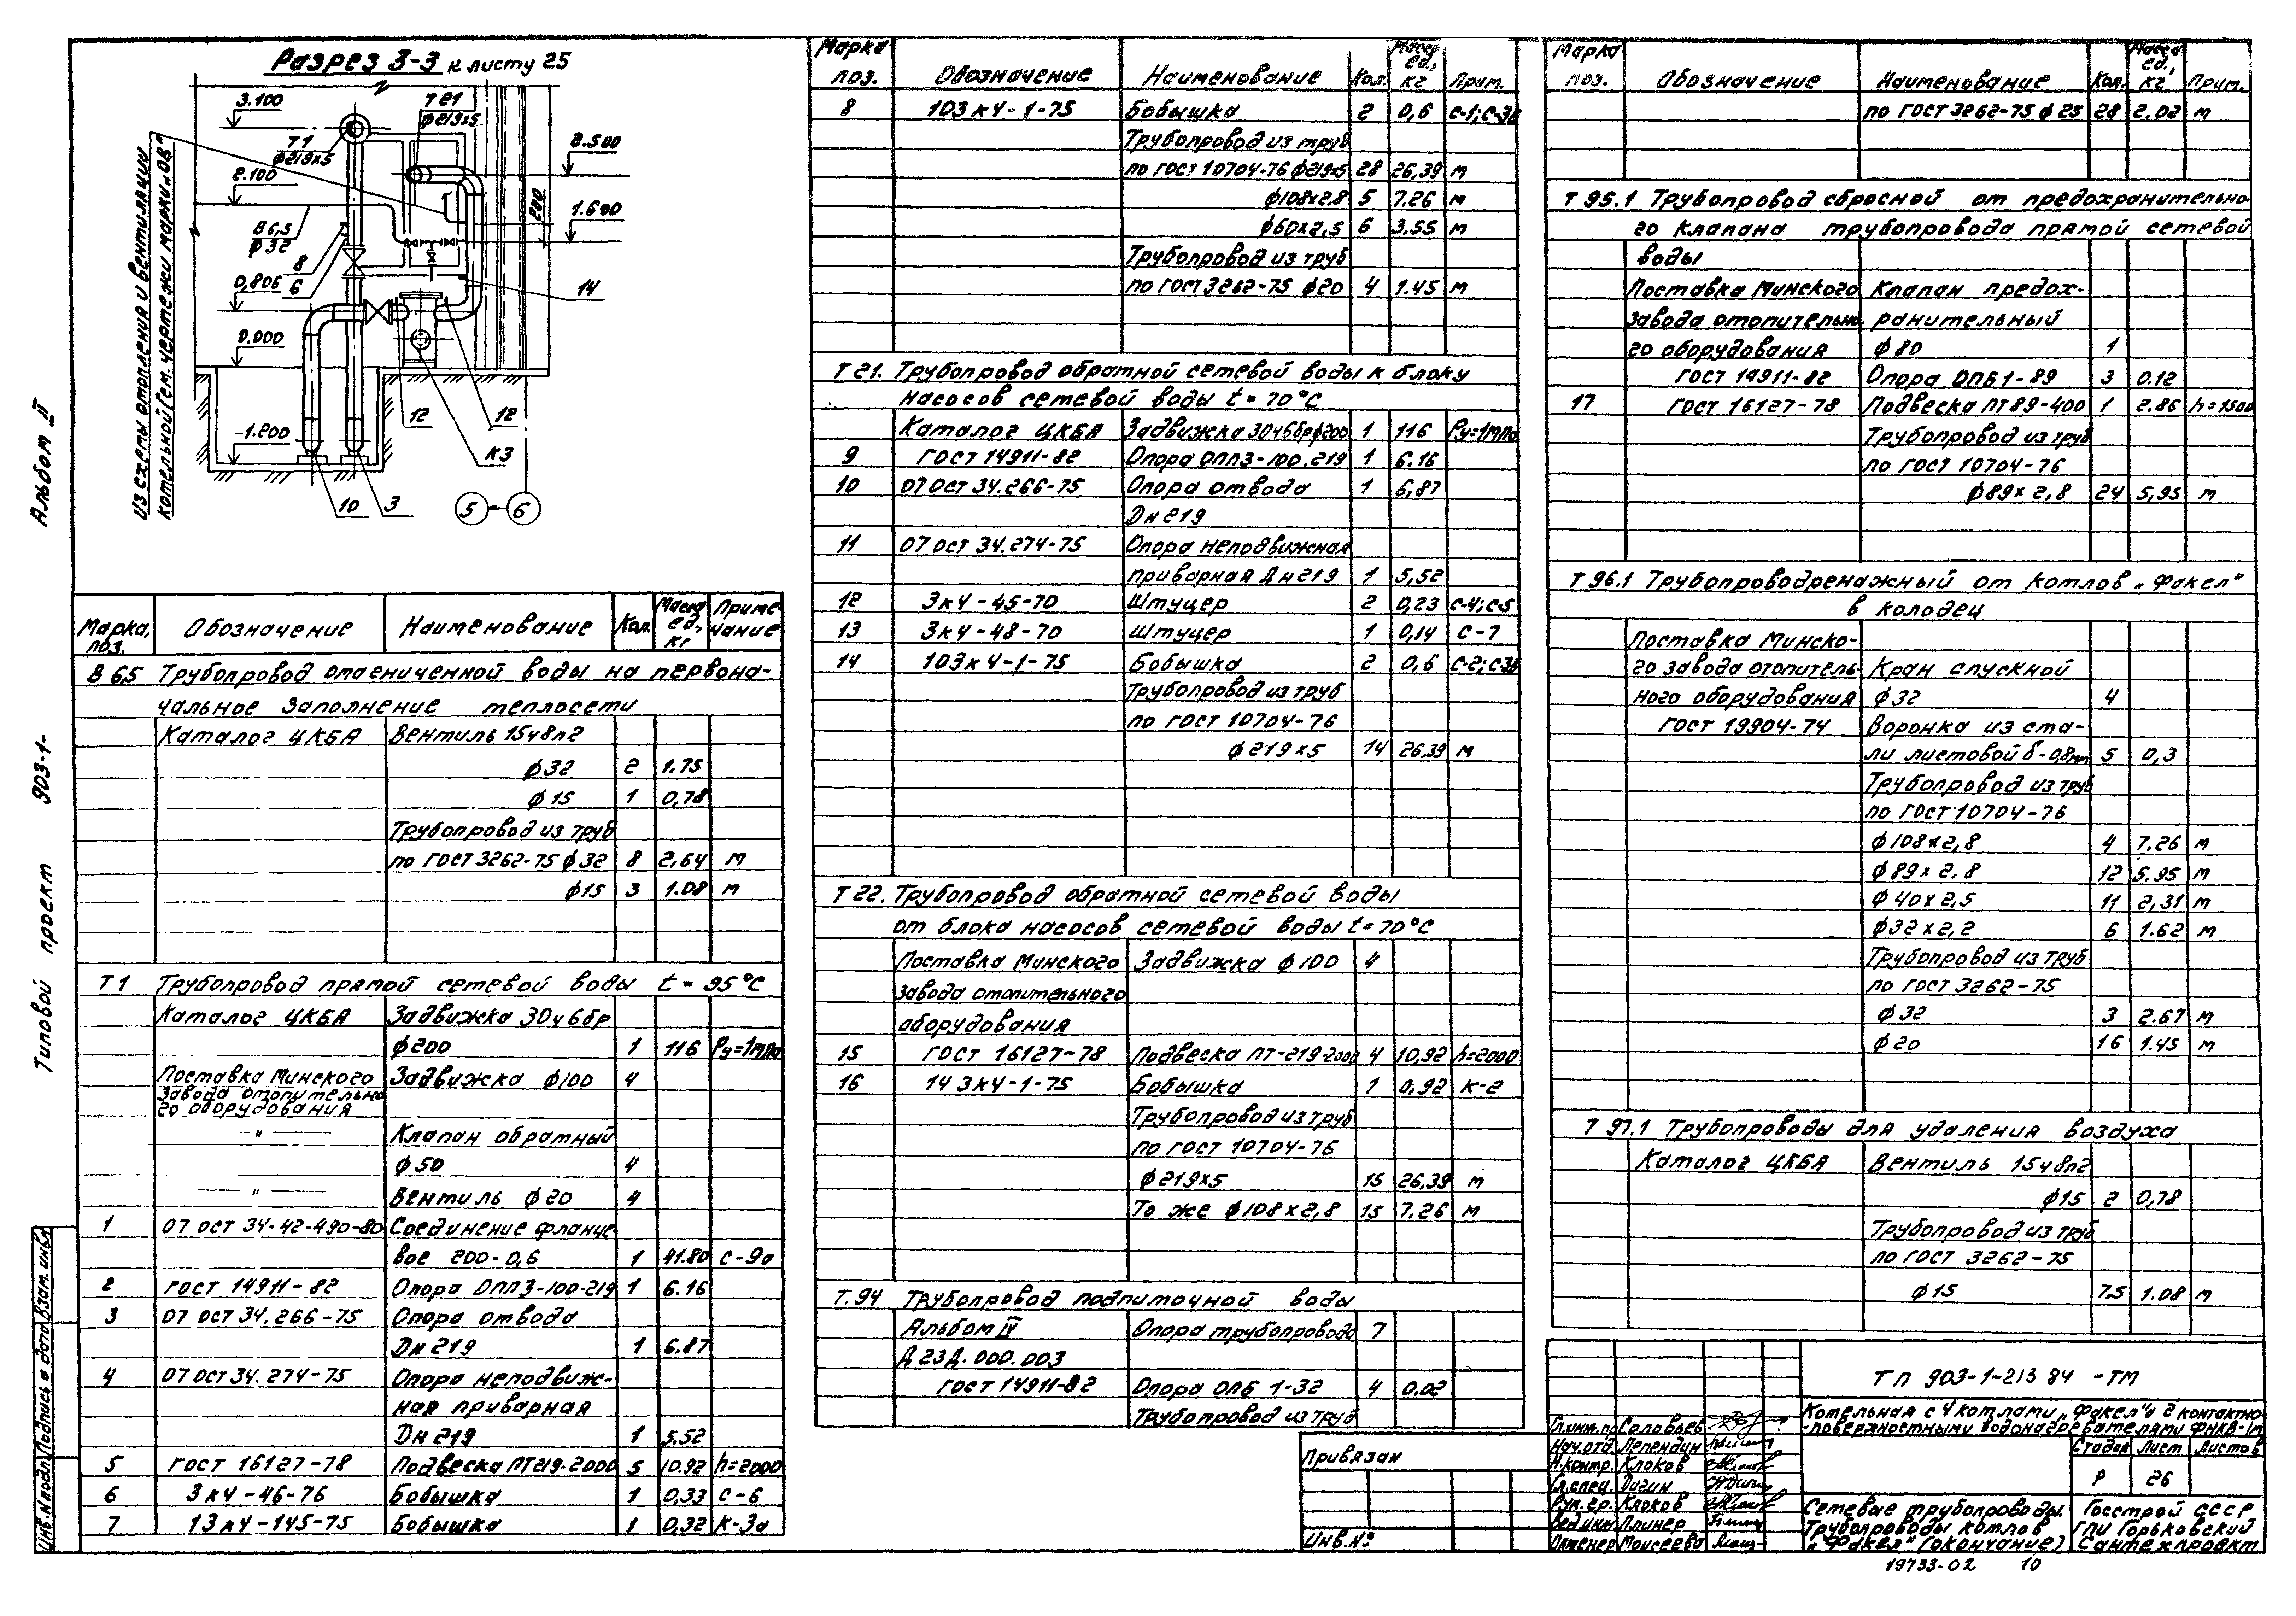 Разрез 3-3 к листу 25
3.100
Т21
ф219х5
Т1
ф219х5
2.500
2.100
200
1.600
В6,5
ф32
8
6
0,806
14
0.000
12
12
-1.200
К3
10
3
5
6
Из схемы отопления и вентиляции
котельной (см. чертежи марки „ОВ"
Альбом II
Типовой проект 903-1-
Взам. инв.№
Подпись и дата
Инв.№подл.
Марка, поз. Обозначение Наименование Кол. Масса ед., кг Примечание
В 6,5 Трубопровод отдениченной воды на первона-
чальное заполнение теплосети
Каталог ЦКБА Вентиль 15ч8п2
ф32 2 1.75
ф15 1 0,78
Трубопровод из труб
по ГОСТ 3262-75 ф32 8 2,64 м
ф15 3 1.08 м
Т1 Трубопровод прямой сетевой воды t = 95°С
Каталог ЦКБА Задвижка 30ч6бр
ф200 1 116 Ру=1мпа
Поставка Минского Задвижка ф100 4
завода отопительно
го оборудования
— " — Клапан обратный
ф50 4
— " — Вентиль ф20 4
1 07 ост 34-42-490-80 Соединение фланце
вое 200-0,6 1 41.80 С-9а
2 ГОСТ 14911-82 Опора ОПП3-100-219 1 6.16
3 07 ост 34.266-75 Опора отвода
Дн 219 1 6.87
4 07 ост 34.274-75 Опора неподвиж-
ная приварная
Дн 219 1 5.52
5 ГОСТ 16127-78 Подвеска ПТ219-2000 5 10.92 h=2000
6 3к4-46-76 Бобышка 1 0,33 С-6
7 13к4-145-75 Бобышка 1 0,32 К-3а
Марка поз. Обозначение Наименование Кол. Масса ед., кг Прим.
8 103к4-1-75 Бобышка 2 0,6
Трубопровод из труб
по ГОСТ 10704-76 ф219х5 28 26,39 м
ф108х2,8 5 7.26 м
ф60х2,5 6 3.55 м
Трубопровод из труб
по ГОСТ 3262-75 ф20 4 1.45 м
Т21. Трубопровод обратной сетевой воды к блоку
насосов сетевой воды t = 70°С
Каталог ЦКБА Задвижка 30ч6брф200 1 116 Ру=1мпа
9 ГОСТ 14911-82 Опора ОПП3-100.219 1 6.16
10 07 ост 34.266-75 Опора отвода 1 6,87
Дн 219
11 07 ост 34.274-75 Опора неподвижная
приварная Дн 219 1 5,52
12 3к4-45-70 Штуцер 2 0,23 С-4; С-5
13 3к4-48-70 Штуцер 1 0,14 С-7
14 103к4-1-75 Бобышка 2 0,6
Трубопровод из труб
по ГОСТ 10704-76
ф219х5 14 26.39 м
Т22. Трубопровод обратной сетевой воды
от блока насосов сетевой воды t = 70°С
Поставка Минского Задвижка ф100 4
завода отопительного
оборудования
15 ГОСТ 16127-78 Подвеска ПТ-219-2000 4 10,92 h=2000
16 143к4-1-75 Бобышка 1 0,92 К-2
Трубопровод из труб
по ГОСТ 10704-76
ф219х5 15 26,39 м
То же ф108х2,8 15 7.26 м
Т.94 Трубопровод подпиточной воды
Альбом IV Опора трубопровода 7
Д 23Д.000.003
ГОСТ 14911-82 Опора ОПБ 1-32 4 0.02
Трубопровод из труб
Марка поз. Обозначение Наименование Кол. Масса ед., кг Прим.
по ГОСТ 3262-75 ф25 28 2.02 м
Т 95.1 Трубопровод сбросной от предохранительно-
го клапана трубопровода прямой сетевой
воды
Поставка Минского Клапан предох-
завода отопительно ранительный
го оборудования ф80 1
ГОСТ 14911-82 Опора ОПБ1-89 3 0.12
17 ГОСТ 16127-78 Подвеска ПТ89-400 1 2.86 h=1500
Трубопровод из труб
по ГОСТ 10704-76
ф89х2,8 24 5,95 м
Т 96.1 Трубопровод дренажный от котлов „Факел"
в колодец
Поставка Минско-
го завода отопитель- Кран спускной
ного оборудования ф32 4
ГОСТ 19904-74 Воронка из ста-
ли листовой б-0,8мм 5 0,3
Трубопровод из труб
по ГОСТ 10704-76
ф108х2,8 4 7.26 м
ф89х2,8 12 5.95 м
ф40х2,5 11 2,31 м
ф32х2,2 6 1.62 м
Трубопровод из труб
по ГОСТ 3262-75
ф32 3 2.67 м
ф20 16 1.45 м
Т 97.1 Трубопроводы для удаления воздуха
Каталог ЦКБА Вентиль 15ч8п2
ф15 2 0,78
Трубопровод из труб
по ГОСТ 3262-75
ф15 7,5 1.08 м
Привязан
Инв.№
ТП 903-1-213 84 -ТМ
Котельная с 4 котлами „Факел" и 2 контактно-
-поверхностными водонагревателями ФНКВ-1м
Гл.инж.пр Соловьев
Нач.отд. Лепендин
Н.контр. Клоков
Гл.спец. Дигин
Рук.гр. Клоков
Вед.инж Плинер
Инженер Моисеева
Стадия Лист Листов
Р 26
Сетевые трубопроводы.
Трубопроводы котлов
„Факел" (окончание)
Госстрой СССР
ГПИ Горьковский
Сантехпроект
19733-02 10